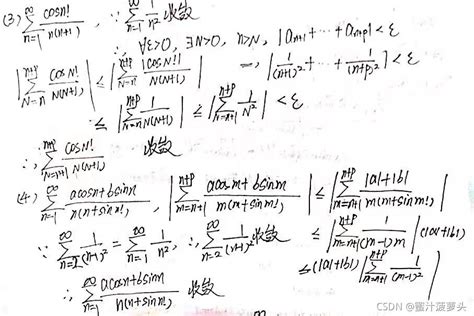 (3) ∑_{n=1}^{∞} cosn!/n(n+1), ∵ ∑_{n=1}^{∞} 1/n² 收敛
∴ ∀ε>0, ∃N>0, n>N, |a_{n+1}+…+a_{n+p}|<ε
|∑_{N=n}^{n+p} cosN!/N(N+1)| ≤ |∑_{N=n+1}^{n+p} |cosN!|/N(N+1)| =, |1/(n+1)²+…+1/(n+p)²|<ε
≤ |∑_{N=n+1}^{n+p} 1/N(N+1)| ≤ |∑_{N=n+1}^{n+p} 1/N²| <ε
∴ ∑_{N=n+1}^{n+p} cosN!/N(N+1) 收敛
(4) ∑_{n=1}^{∞} acosn+bsinn/n(n+sinn!), |∑_{m=n+1}^{n+p} acosm+bsinm/m(m+sinm!)| ≤ |∑_{m=n+1}^{n+p} |a|+|b|/m(m+sinm!)|
∵ ∑_{n=2}^{∞} 1/(n-1)² = ∑_{n=1}^{∞} 1/n², ∴ ∑_{n=2}^{∞} 1/(n-1)² 收敛 ≤ |∑_{m=n+1}^{n+p} 1/(m-1)m| (|a|+|b|)
≤ (|a|+|b|) |∑_{m=n+1}^{n+p} 1/(m-1)²|
∴ ∑_{n=1}^{∞} acosn+bsinn/n(n+sinn!) 收敛
CSDN @蜜汁菠萝头